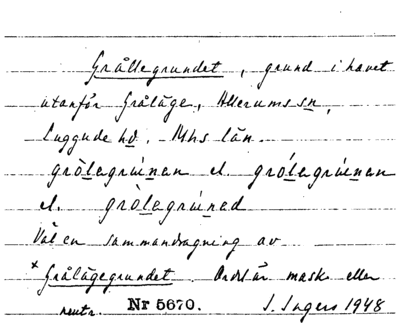 Grållegrundet, grund i havet
utanför Gråläge, Allerums sn,
Luggude hd. Mhs län.
grȯlegrúnen el. grólegrúnen
el. grȯlegrúned
Väl en sammandragning av
*Grålägegrundet. Ordet är mask eller
neutr. Nr 5670. J. Ingers 1948